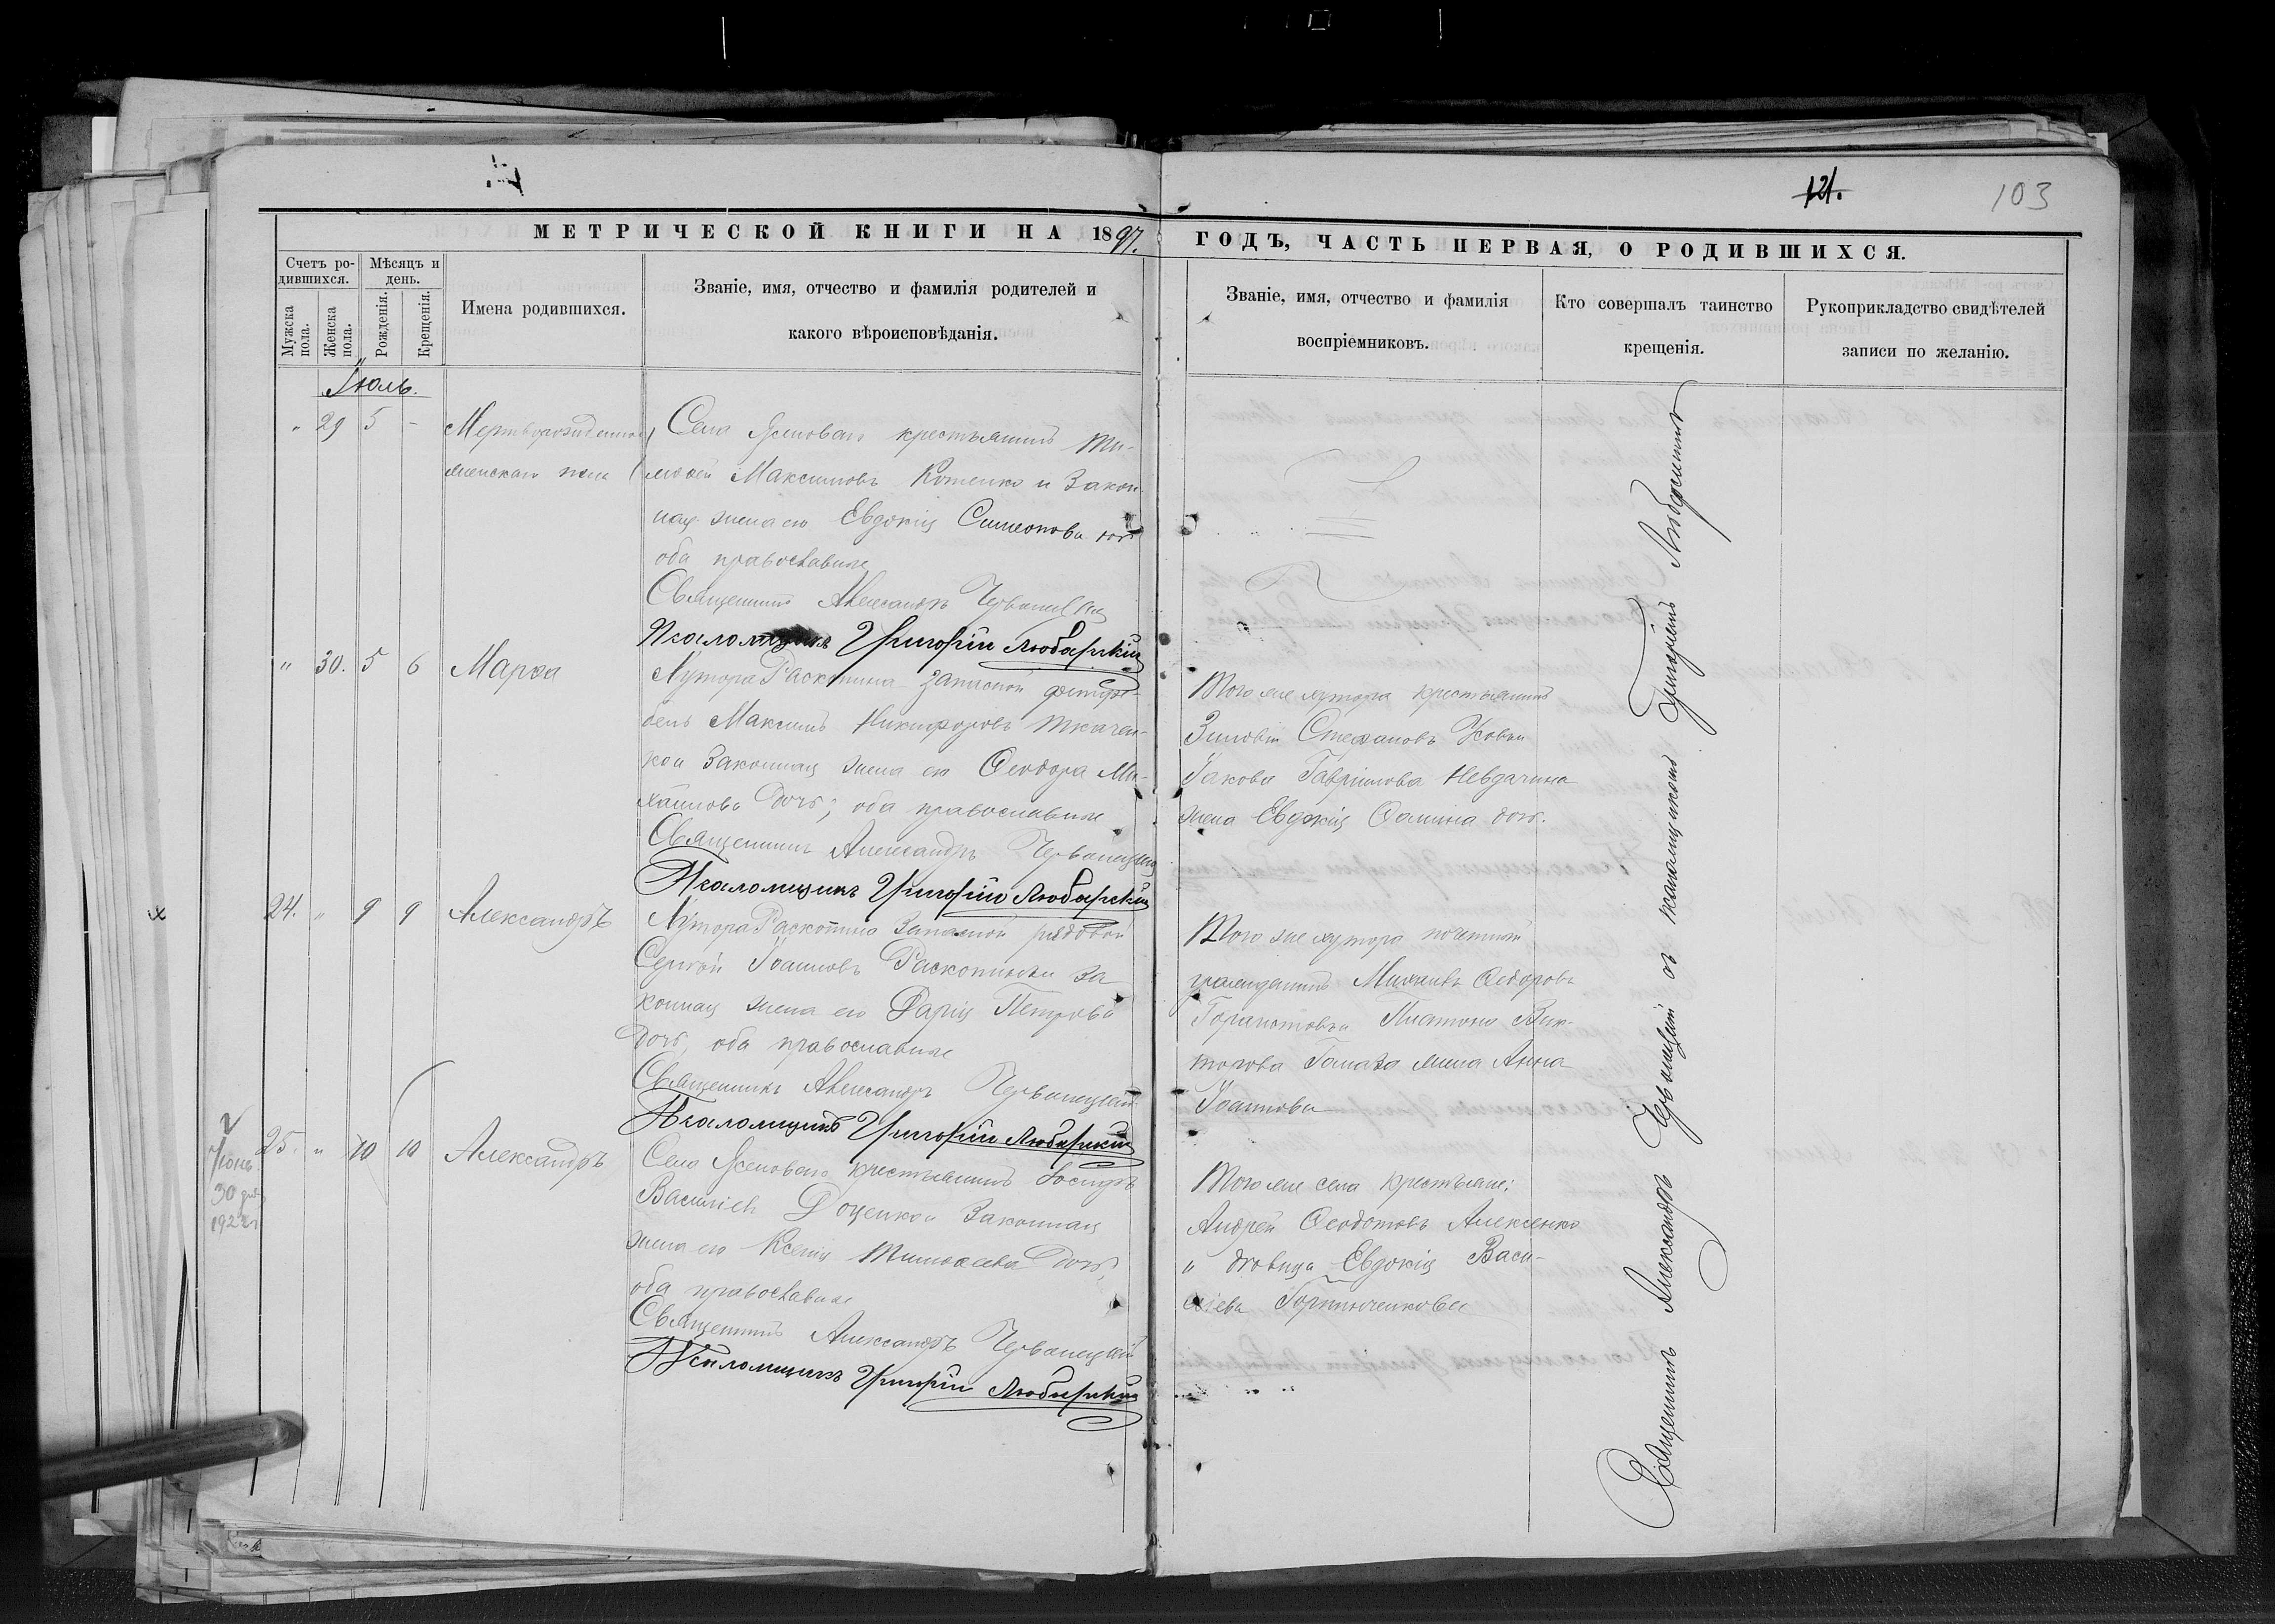 121.
103
МЕТРИЧЕСКОЙ КНИГИ НА 1897.
ГОДЪ, ЧАСТЬ ПЕРВАЯ, О РОДИВШИХСЯ.
Счетъ ро-
дившихся.
Мѣсяцъ и
день.
Мужска
пола.
Женска
пола.
Рожденія.
Крещенія.
Имена родившихся.
Званіе, имя, отчество и фамилія родителей и
какого вѣроисповѣданія.
Званіе, имя, отчество и фамилія
воспріемниковъ.
Кто совершалъ таинство
крещенія.
Рукоприкладство свидѣтелей
записи по желанію.
Іюль.
" 29 5 -
женскаго пола
Села крестьянинъ Ти-
моѳей Максимовъ Котенко и Закон-
ная жена его Евдокія Симеонова
оба православные
Священникъ Александръ Червонецкій
Псаломщикъ Григорій Любарскій
" 30. 5 6 Марѳа
Хутора Раскопина запасной
Максимъ Никифоровъ Ткачен-
ко и Законная жена его Ѳеодора Ми-
хайлова дочь; оба православные
Священникъ Александръ Червонецкій
Псаломщикъ Григорій Любарскій
Того же хутора крестьянинъ
Зиновій Стефановъ
Іакова Гавріилова Невдачина
жена Евдокія Ѳомина дочь.
24. " 9 9 Александръ
Хутора Раскопина Запасной рядовой
Сергѣй Іоанновъ Раскопинъ и за
конная жена его Дарія Петрова
дочь, оба православные
Священникъ Александръ Червонецкій
Псаломщикъ Григорій Любарскій
Того же хутора почетный
гражданинъ Михаилъ Ѳеодоровъ
Платона Вик-
торова жена Анна
Іоаннова
25. " 10 10 Александръ
Іюнь
30 дня
1922 г
Села крестьянинъ Іосифъ
Василіевъ Доценко и Законная
жена его Ксенія Тимоѳеева дочь,
оба православные
Священникъ Александръ Червонецкій
Псаломщикъ Григорій Любарскій
Того же села крестьяне:
Андрей Ѳеодотовъ Алексенко
и Евдокія Васи-
ліева Горпинченкова
Священникъ Александръ Червонецкій съ псаломщикомъ Григоріемъ Любарскимъ